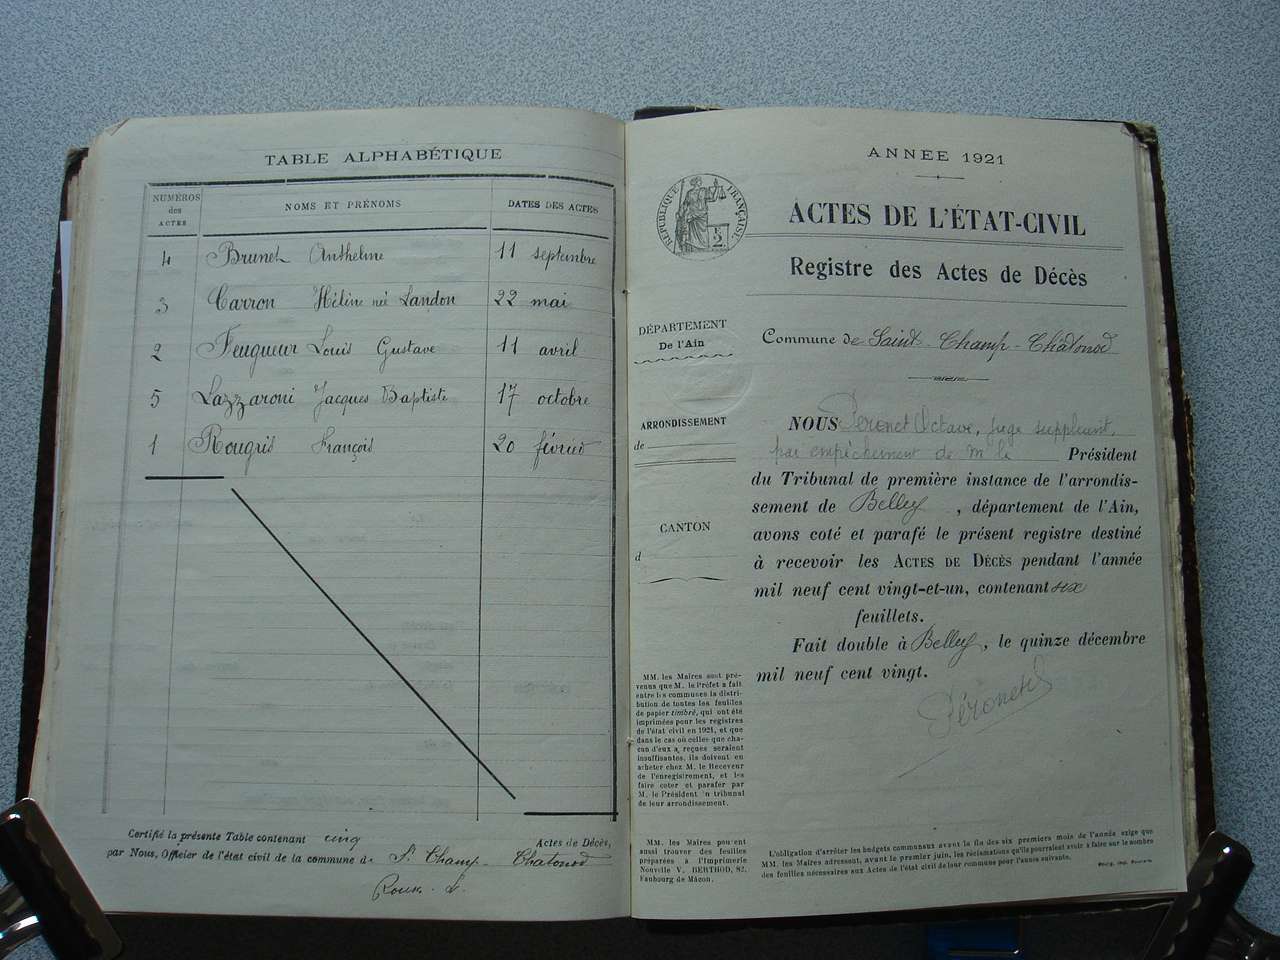 TABLE ALPHABÉTIQUE
NUMÉROS des ACTES NOMS ET PRÉNOMS DATES DES ACTES
4 Brunet Anthelme 11 septembre
3 Carron Hélène née Landon 22 mai
2 Feugueur Louis Gustave 11 avril
5 Lazzaroni Jacques Baptiste 17 octobre
1 Rougris François 20 février
Certifié la présente Table contenant cinq Actes de Décès,
par Nous, Officier de l'état civil de la commune de St Champ-Chatonod
Roux
ANNEE 1921
RÉPUBLIQUE FRANÇAISE
2
ACTES DE L'ÉTAT-CIVIL
Registre des Actes de Décès
DÉPARTEMENT
De l'Ain
Commune de Saint-Champ-Châtonod
ARRONDISSEMENT
de
CANTON
d
NOUS Péronet Octave, juge suppléant,
par empêchement de M le Président
du Tribunal de première instance de l'arrondis-
sement de Belley, département de l'Ain,
avons coté et parafé le présent registre destiné
à recevoir les ACTES DE DÉCÈS pendant l'année
mil neuf cent vingt-et-un, contenant six
feuillets.
Fait double à Belley, le quinze décembre
mil neuf cent vingt.
Péronet
MM. les Maires sont pré-
venus que M. le Préfet a fait
entre les communes la distri-
bution de toutes les feuilles
de papier timbré, qui ont été
imprimées pour les registres
de l'état civil en 1921, et que
dans le cas où celles que cha-
cun d'eux a reçues seraient
insuffisantes, ils doivent en
acheter chez M. le Receveur
de l'enregistrement, et les
faire coter et parafer par
M. le Président du tribunal
de leur arrondissement.
MM. les Maires pourront
aussi trouver des feuilles
préparées à l'Imprimerie
Nouvelle V. BERTHOD, 82,
Faubourg de Mâcon.
L'obligation d'arrêter les budgets communaux avant la fin des six premiers mois de l'année exige que
MM. les Maires adressent, avant le premier juin, les réclamations qu'ils pourraient avoir à faire sur le nombre
des feuilles nécessaires aux Actes de l'état civil de leur commune pour l'année suivante.